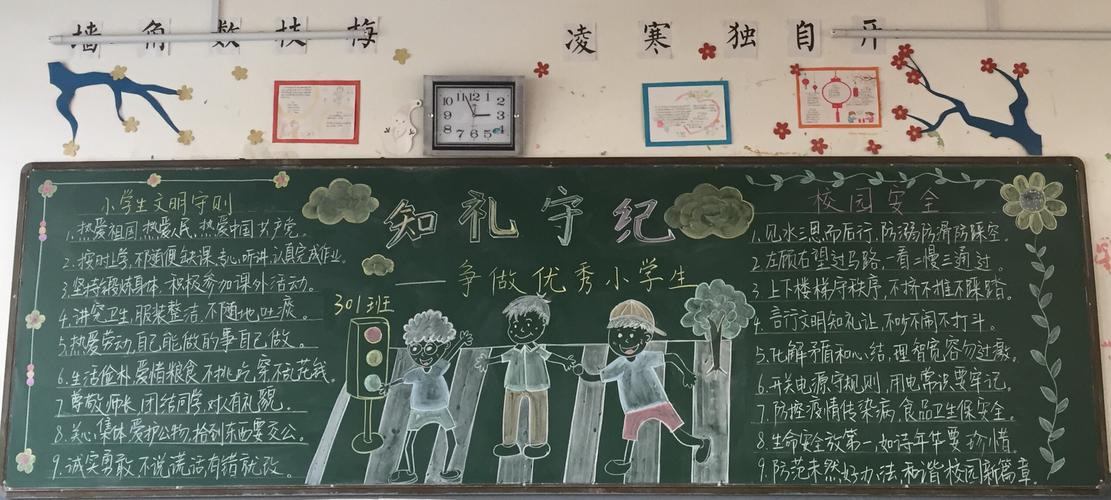 墙角数枝梅
凌寒独自开
10 11 12 1 2 3 4 5 6 7 8 9
知礼守纪
——争做优秀小学生
301班
小学生文明守则
1.热爱祖国,热爱人民,热爱中国共产党。
2.按时上学,不随便缺课,专心听讲,认真完成作业。
3.坚持锻炼身体,积极参加课外活动。
4.讲究卫生,服装整洁,不随地吐痰。
5.热爱劳动,自己能做的事自己做。
6.生活俭朴,爱惜粮食,不挑吃穿不乱花钱。
7.尊敬师长,团结同学,对人有礼貌。
8.关心集体,爱护公物,拾到东西要交公。
9.诚实勇敢,不说谎话有错就改。
校园安全
1.见水三思而后行,防溺防滑防踩空。
2.左顾右望过马路,一看二慢三通过。
3.上下楼梯守秩序,不挤不推不踩踏。
4.言行文明知礼让,不吵不闹不打斗。
5.化解矛盾和心结,理智宽容勿过激。
6.开关电源守规则,用电常识要牢记。
7.防控疫情传染病,食品卫生保安全。
8.生命安全放第一,如诗年华要珍惜。
9.防范未然好办法,和谐校园新篇章。